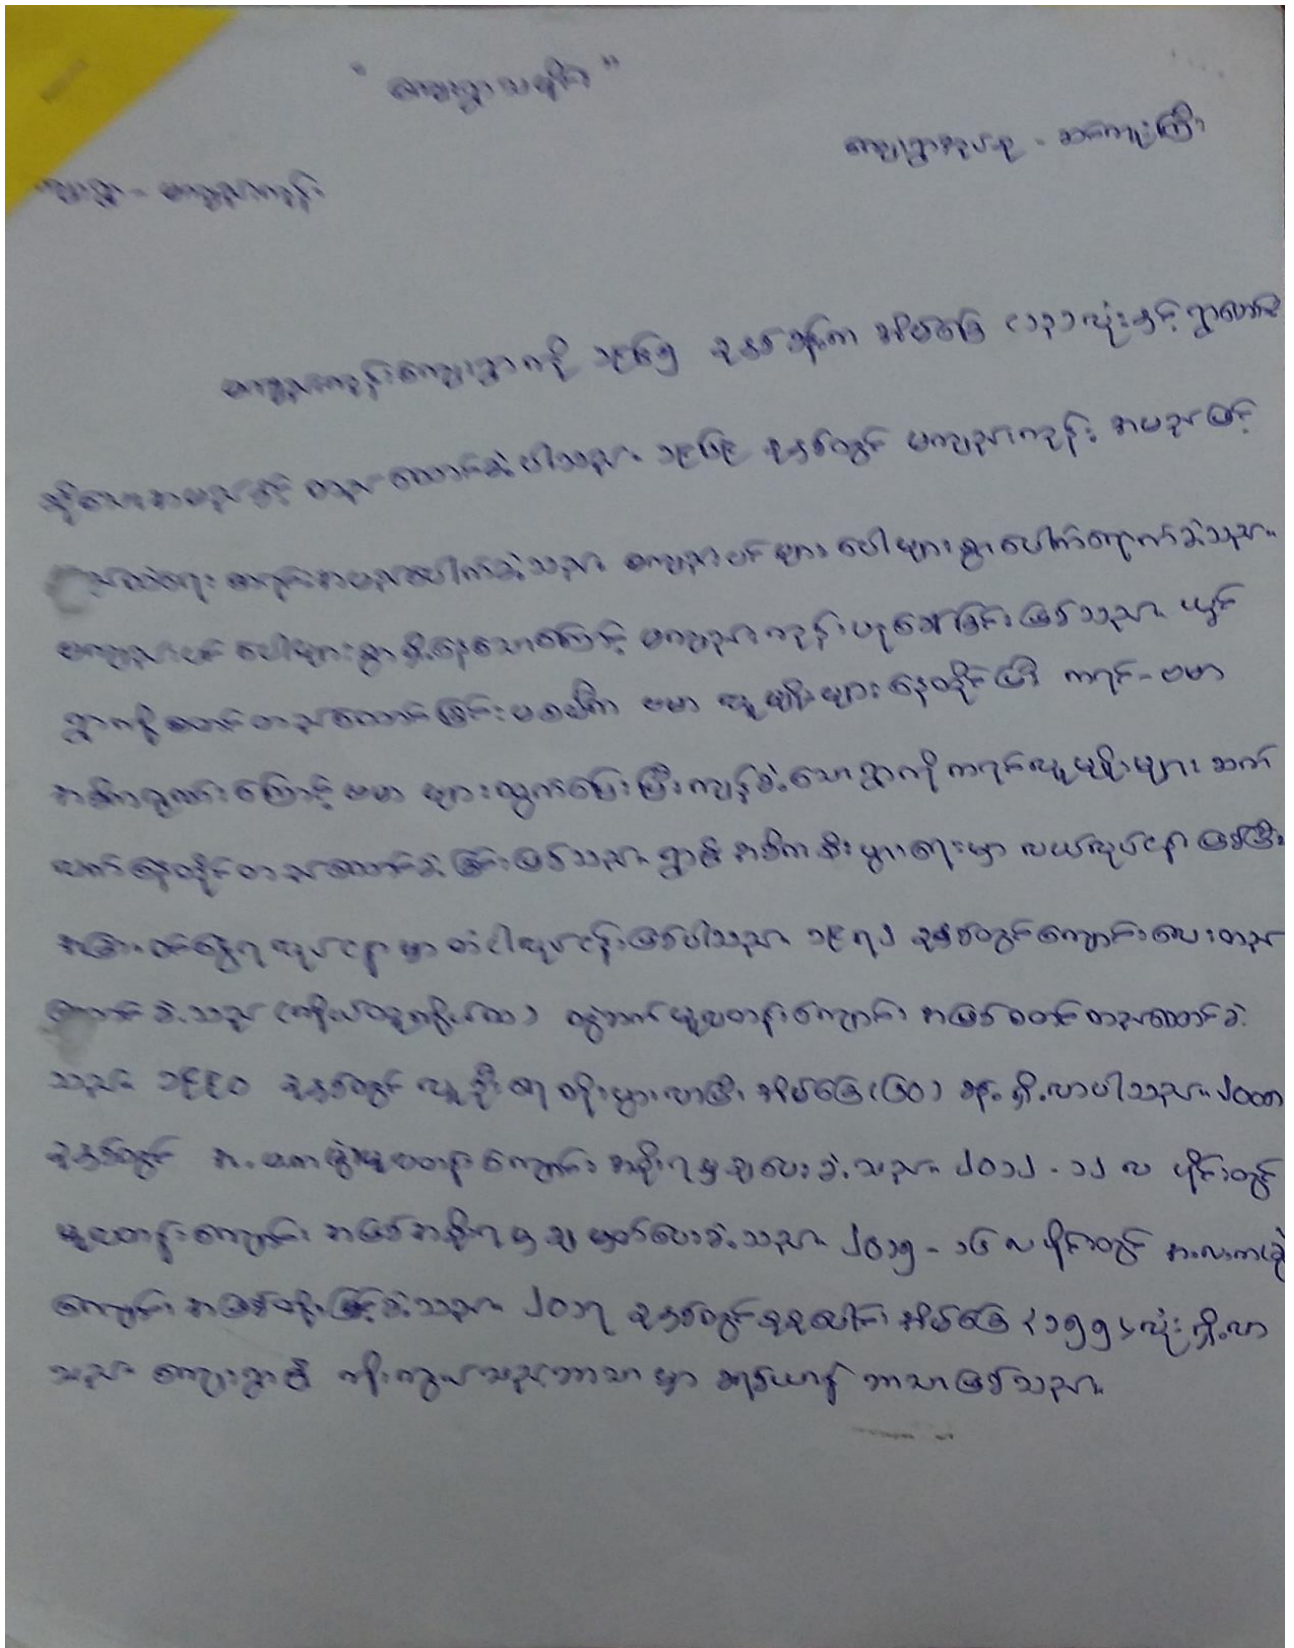 " ကျေးရွာသမိုင်း "
ကျေးရွာအုပ်စု - ဆင်ကူးကြီး
ကျေးရွာ - မကျည်းကုန်း
မကျည်းကုန်းကျေးရွာကို ခုနှစ်ခန့်က အိမ်ခြေ (၁၃) လုံးနှင့်
အမည်ဖြင့် တည်ထောင်ခဲ့ပါသည်။ ၁၉၆၉ ခုနှစ်တွင် မကျည်းကုန်း အမည်ဖြင့်
အမည်ပေါက်ခဲ့သည်။ မကျည်းပင်များ ပေါများစွာ ပေါက်ရောက်ခဲ့သည်။
မကျည်းပင် ပေါများစွာ ရှိနေသောကြောင့် မကျည်းကုန်းဟုခေါ်ခြင်းဖြစ်သည်။ ယင်း
ရွာကို စတင်တည်ထောင်ခြင်းမစမီက ဗမာ လူမျိုးများ နေထိုင်ပြီး ကရင် - ဗမာ
အဓိကရုဏ်းကြောင့် ဗမာ များထွက်ပြေးပြီးကျန်ခဲ့သောရွာကို ကရင်လူမျိုးများ ဆက်
လက်နေထိုင်တည်ထောင်ခဲ့ခြင်းဖြစ်သည်။ ရွာ၏ အဓိက စီးပွားရေးမှာ လယ်လုပ်ငန်း ဖြစ်ပြီး
အခြားဝင်ငွေရလုပ်ငန်းမှာ တံငါလုပ်ငန်းဖြစ်ပါသည်။ ၁၉၇၂ ခုနှစ်တွင်ကျောင်းလေးတည်
ထောင်ခဲ့သည် (ကိုယ်ထူကိုယ်ထ) တွဲဘက်မူလတန်းကျောင်း အဖြစ်စတင်တည်ထောင်ခဲ့
သည်။ ၁၉၉၀ ခုနှစ်တွင် လူဦးရေ တိုးပွားလာပြီး အိမ်ခြေ (၆၀) ခန့် ရှိလာပါသည်။
ခုနှစ်တွင် ကျောင်း အစိုးရမှချပေးခဲ့သည်။ ၂၀၁၂ - ၁၂ လ ပိုင်းတွင်
မူလတန်းကျောင်း အဖြစ်အစိုးရမှ သတ်မှတ်ပေးခဲ့သည်။ ၂၀၁၅ - ၁၆ လပိုင်းတွင် အ.လ.က(ခွဲ)
ကျောင်း အဖြစ်တိုးမြှင့်ခဲ့သည်။ ၂၀၁၇ ခုနှစ်တွင်စုစုပေါင်း အိမ်ခြေ (၁၅၅) လုံး ရှိလာ
သည်။ ကျေးရွာ၏ ကိုးကွယ်သည့်ဘာသာ မှာ ခရစ်ယာန် ဘာသာဖြစ်သည်။